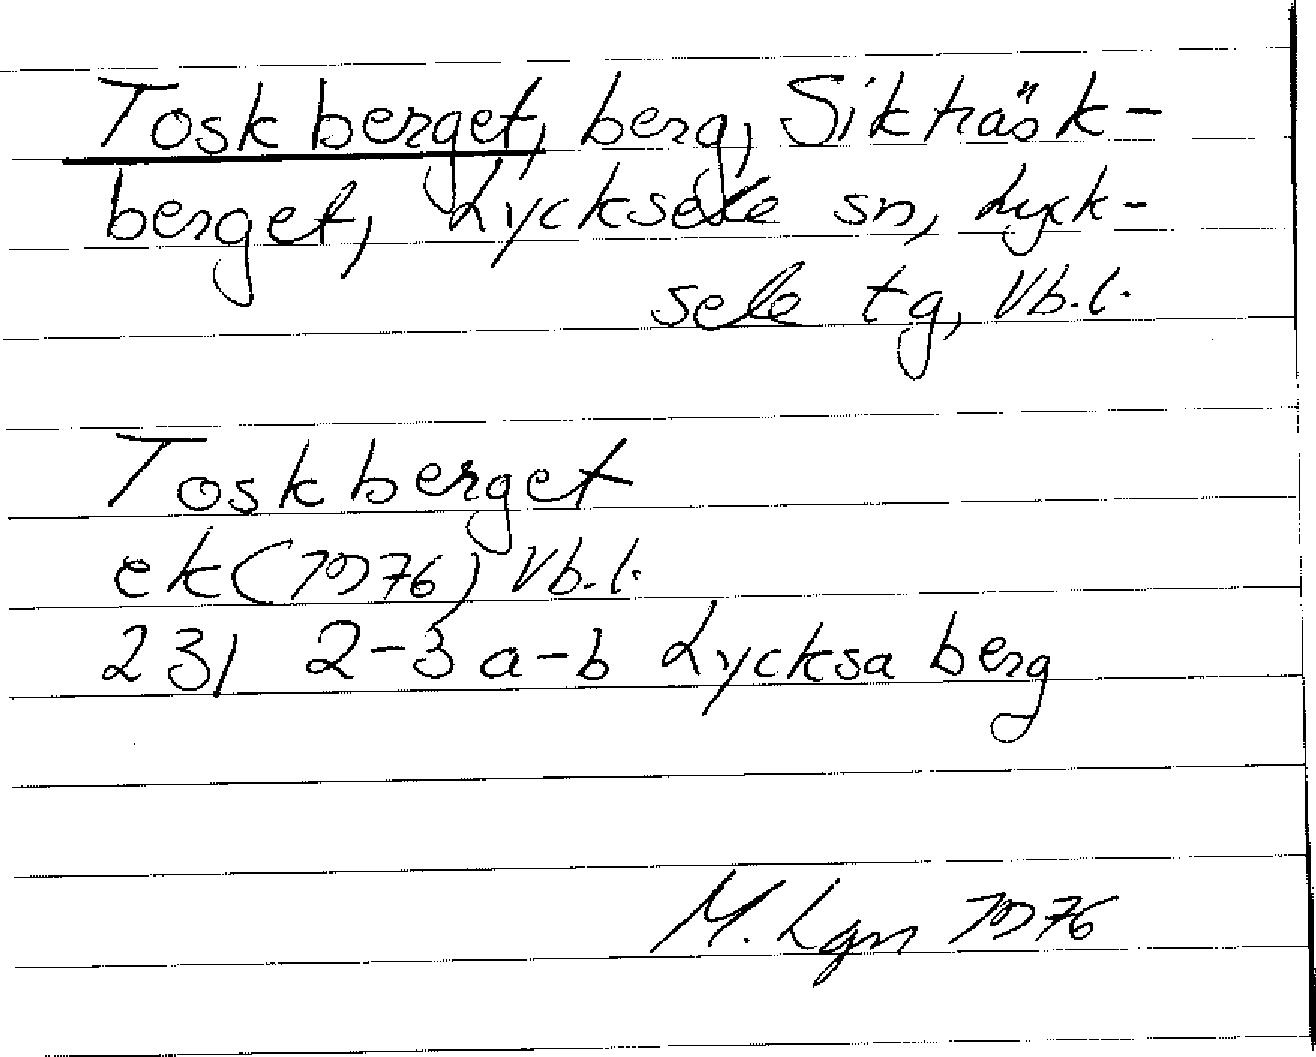 Toskberget, berg, Sikträsk-
berget, Lycksele sn, Lyck-
sele tg, Vb.l.
Toskberget
ek (1976) Vb.l.
23I 2-3 a-b Lycksaberg
M. Lgn 1976